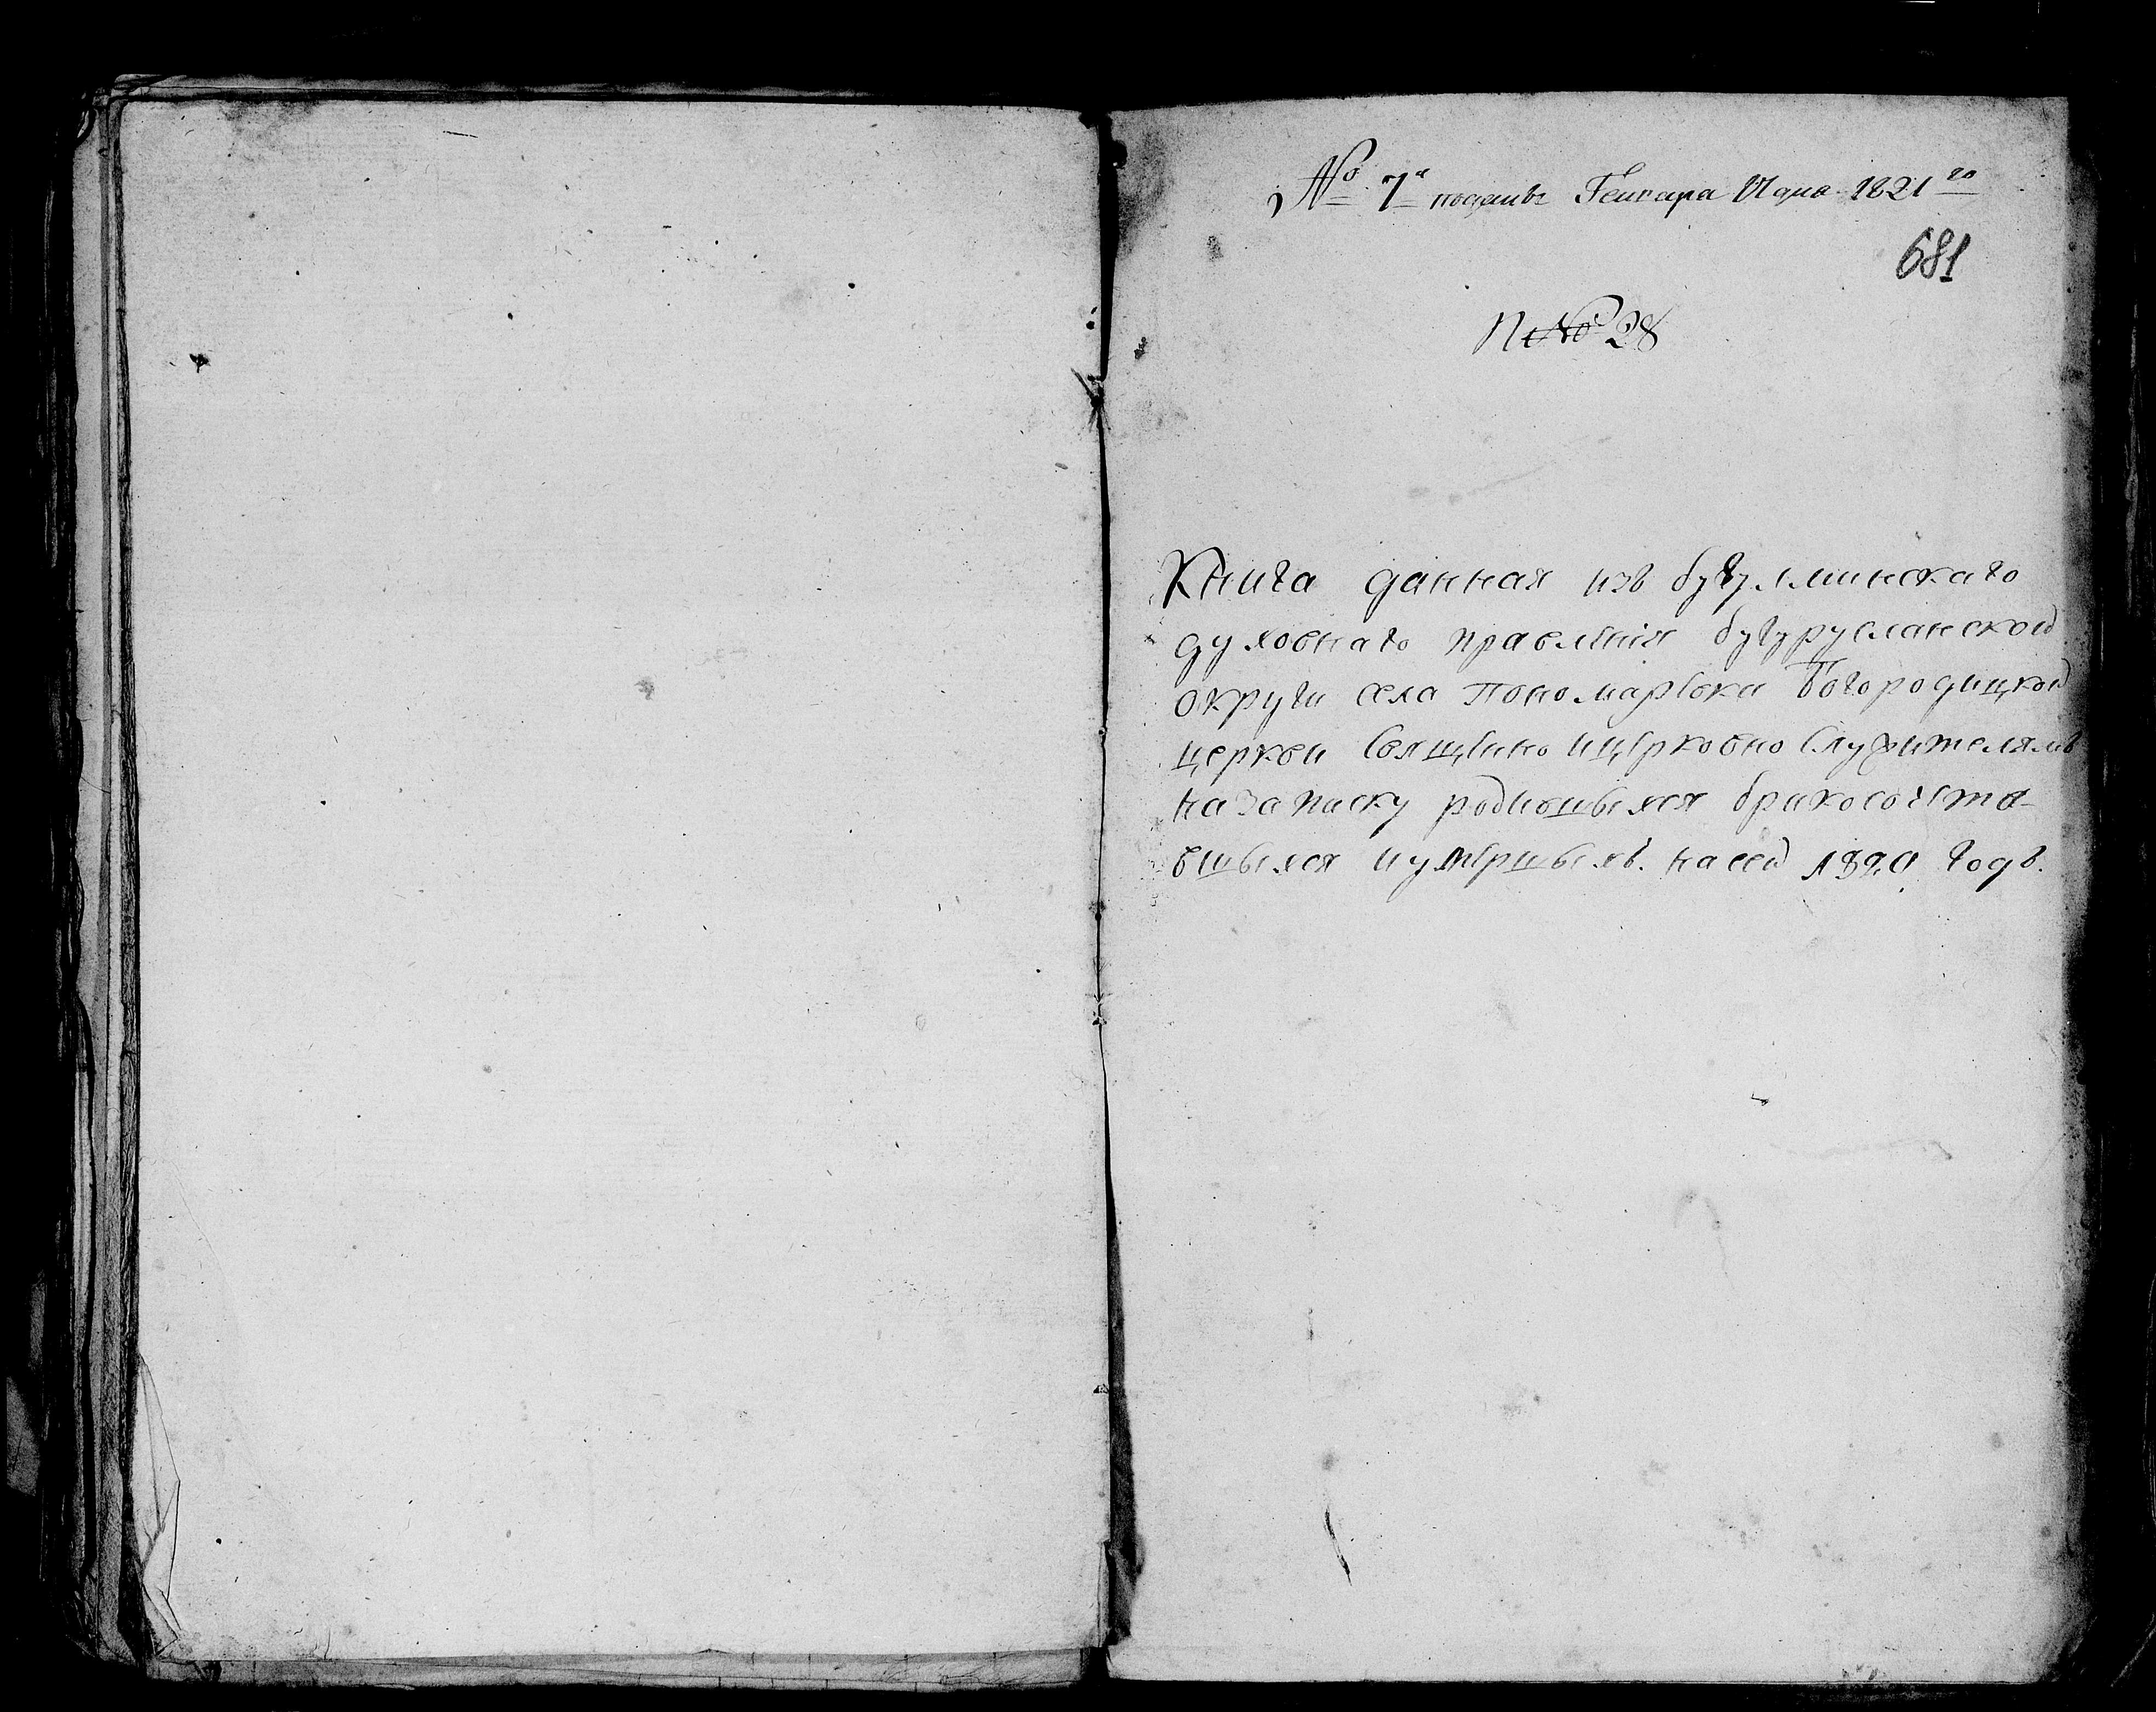 № 7й поданъ Генваря 17 дня 1821го
681
№ 28
Книга данная изъ бугулминскаго
духовнаго правленія бугурусланской
округи села Пономаревки Богородицкой
церкви Священно ицерковно Служителямъ
на записку родившыхся бракосочета-
вшыхся иумершыхъ. на сей 1820 годъ.